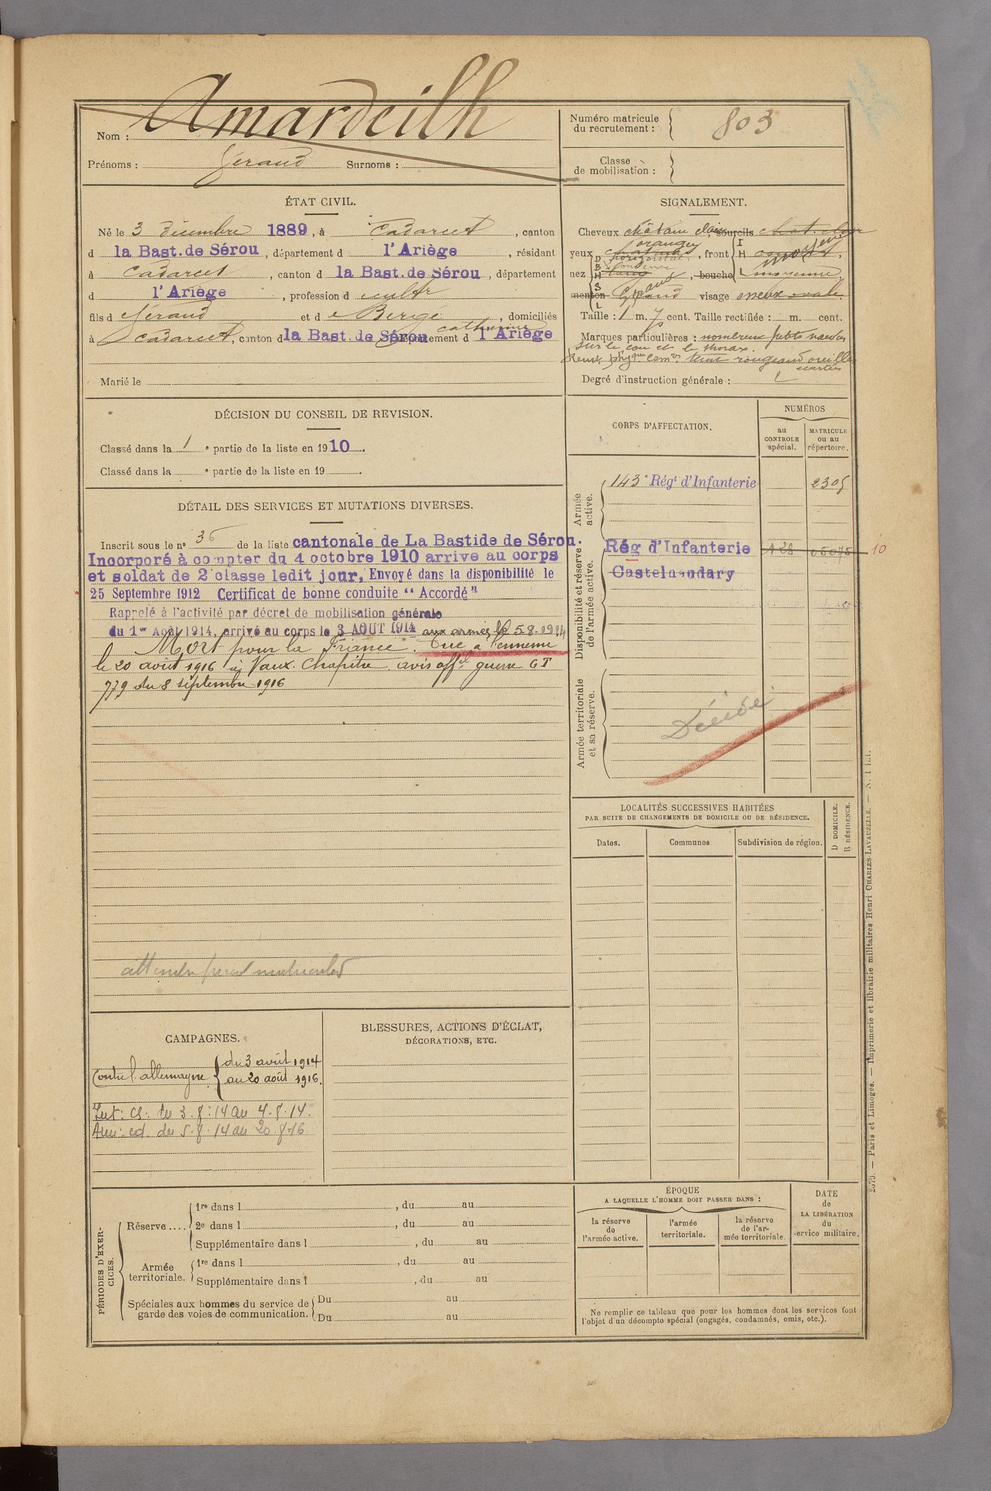 Nom : Amardeilh
Prénoms : Géraud Surnoms :
Numéro matricule du recrutement : 803
Classe de mobilisation :
ÉTAT CIVIL.
Né le 3 décembre 1889, à Cadarcet, canton
d la Bast. de Sérou, département d l'Ariège, résidant
à Cadarcet, canton d la Bast. de Sérou, département
d l'Ariège, profession d cultr
fils d Géraud et d Berge Catherine domiciliés
à Cadarcet, canton d la Bast. de Sérou département d l'Ariège
Marié le
SIGNALEMENT.
Cheveux châtain clair sourcils chat. clair
yeux orangey, front moyenne
nez bouche moyenne
menton visage
Taille : 1 m. 7 cent. Taille rectifiée : m. cent.
Marques particulières : nombreux petits
sur le cou et le thorax.
Rensts physques comres teint rougeaud oreilles
écartées
Degré d'instruction générale :
DÉCISION DU CONSEIL DE REVISION.
Classé dans la 1e partie de la liste en 1910.
Classé dans la e partie de la liste en 19
DÉTAIL DES SERVICES ET MUTATIONS DIVERSES.
Inscrit sous le no 36 de la liste cantonale de La Bastide de Sérou.
Incorporé à compter du 4 octobre 1910 arrivé au corps
et soldat de 2e classe ledit jour. Envoyé dans la disponibilité le
25 Septembre 1912 Certificat de bonne conduite "Accordé"
Rappelé à l'activité par décret de mobilisation générale
du 1er Août 1914, arrivé au corps le 3 AOUT 1914 aux armées le 5.8.1914
Mort pour la France. Tué à l'ennemi
le 20 août 1916 à Vaux Chapitre avis offel guerre GT
779 du 8 septembre 1916
CORPS D'AFFECTATION.
NUMÉROS
au CONTROLE spécial.
MATRICULE ou au répertoire.
Armée active.
143e Régt d'Infanterie 2305
Disponibilité et réserve de l'armée active.
Rég d'Infanterie 10
Castelnaudary
Armée territoriale et sa réserve.
Décédé
LOCALITÉS SUCCESSIVES HABITÉES
PAR SUITE DE CHANGEMENTS DE DOMICILE OU DE RÉSIDENCE.
Dates. Communes Subdivision de région. D DOMICILE. R RÉSIDENCE.
CAMPAGNES.
Contre l'allemagne du 3 août 1914
au 20 août 1916.
Int: cs. du 3.8.14 au 4.8.14.
Aux: cd. du 5.8.14 au 20.8.16
BLESSURES, ACTIONS D'ÉCLAT,
DÉCORATIONS, ETC.
PÉRIODES D'EXERCICES.
Réserve .... 1re dans l, du au
2e dans l, du au
Supplémentaire dans l, du au
Armée territoriale. 1re dans l, du au
Supplémentaire dans l, du au
Spéciales aux hommes du service de garde des voies de communication. Du au
Du au
ÉPOQUE
A LAQUELLE L'HOMME DOIT PASSER DANS :
la réserve de l'armée active.
l'armée territoriale.
la réserve de l'armée territoriale
DATE de LA LIBÉRATION du service militaire.
Ne remplir ce tableau que pour les hommes dont les services font
l'objet d'un décompte spécial (engagés, condamnés, omis, etc.).
Paris et Limoges. — Imprimerie et librairie militaires Henri CHARLES-LAVAUZELLE.